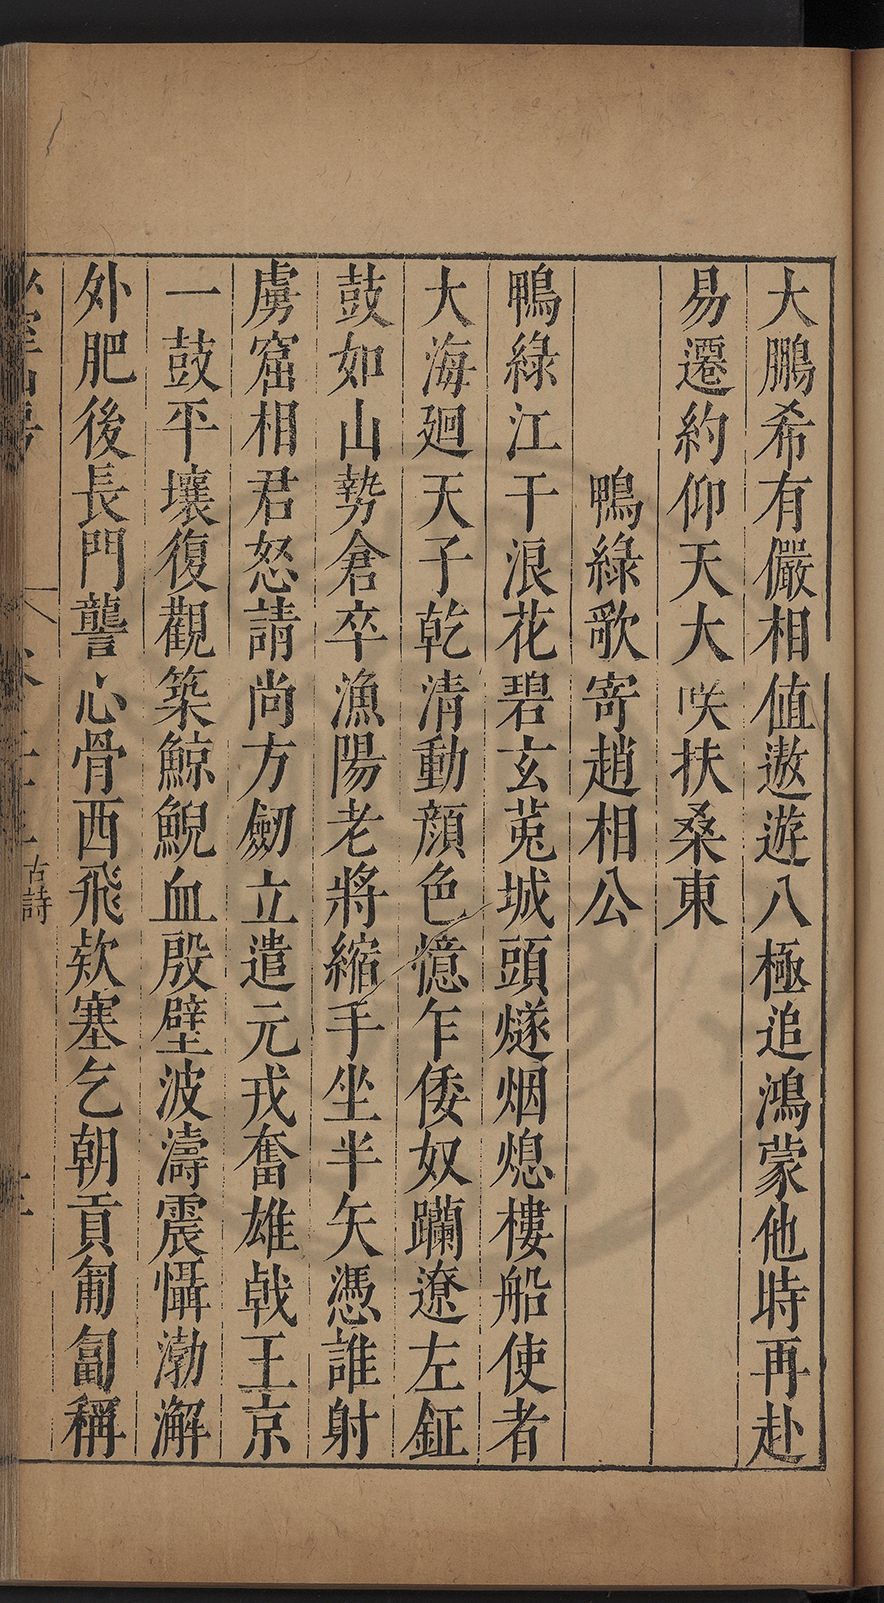 大鵬希有儼相值遨遊八極追鴻蒙他時再赴
易遷約仰天大咲扶桑東
鴨綠歌寄趙相公
鴨綠江干浪花碧玄菟城頭燧烟熄樓船使者
大海廻天子乾清動顔色憶乍倭奴躪遼左鉦
鼓如山勢倉卒漁陽老將縮手坐半矢憑誰射
虜窟相君怒請尚方劒立遣元戎奮雄戟王京
一鼓平壤復觀築鯨鯢血殷壁波濤震懾渤澥
外肥後長門讋心骨西飛欵塞乞朝貢匍匐稱
古詩